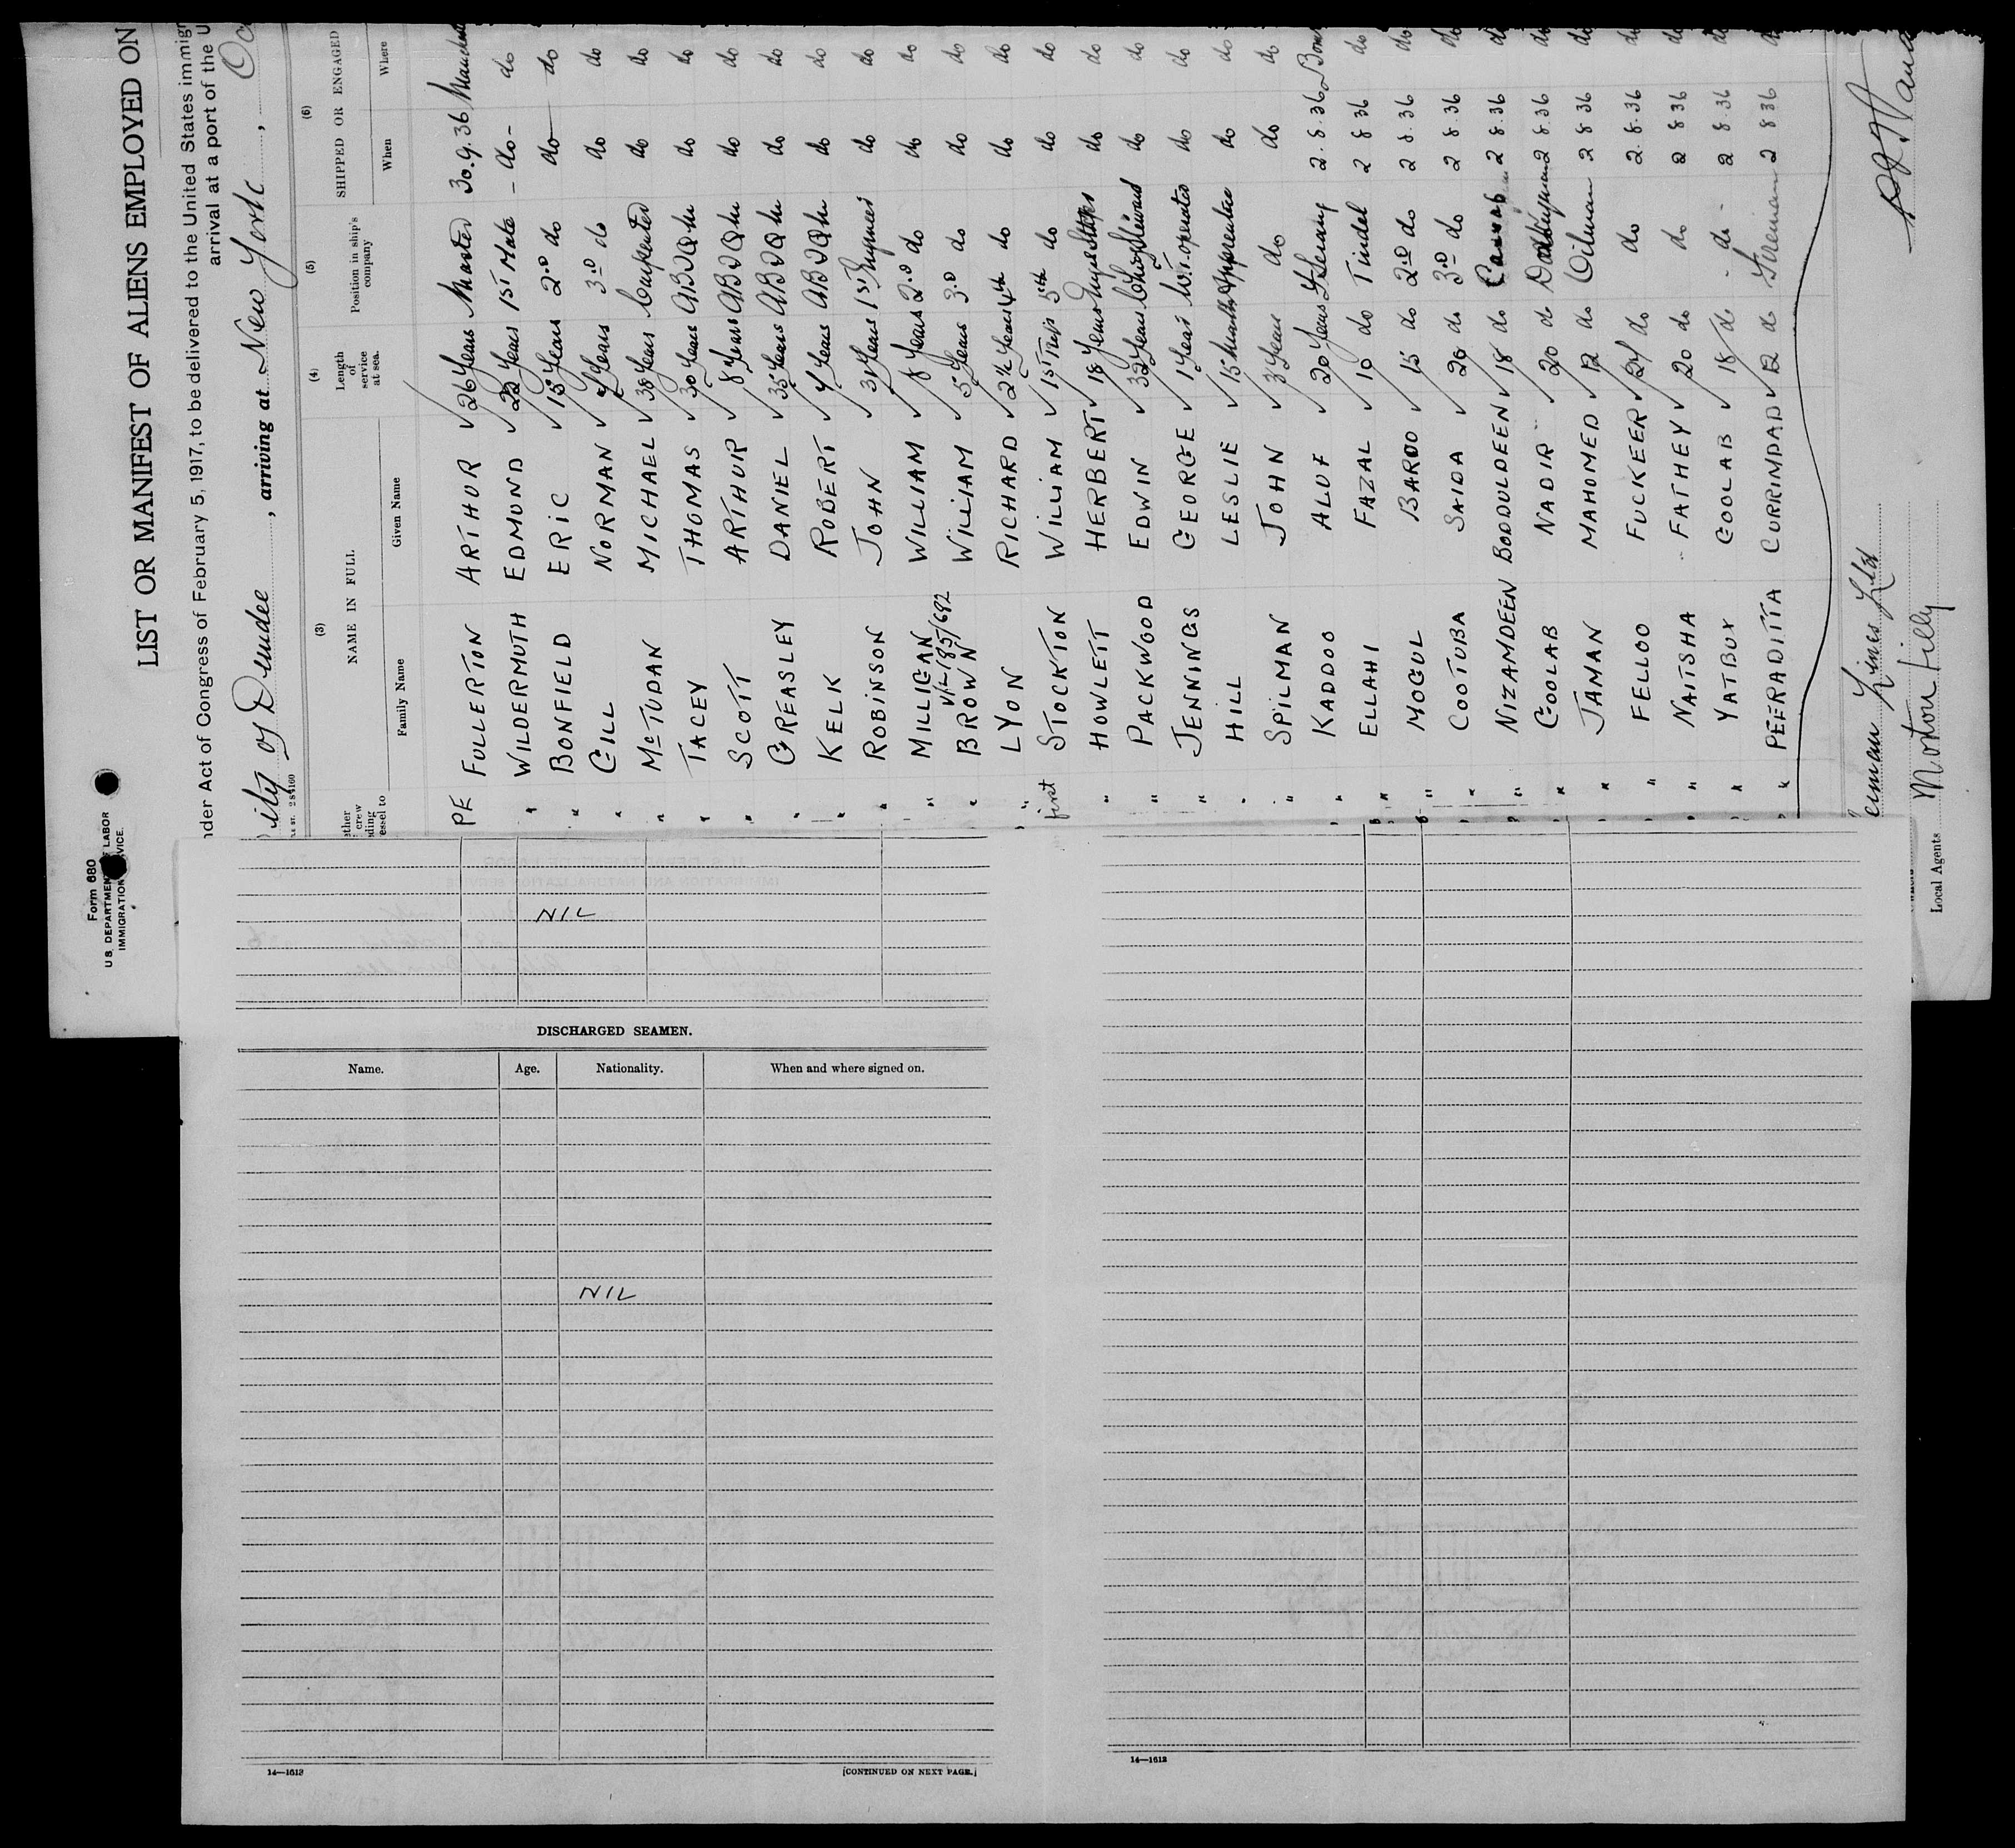 Form 680
U.S. DEPARTMENT OF LABOR
IMMIGRATION SERVICE.
LIST OR MANIFEST OF ALIENS EMPLOYED ON
nder Act of Congress of February 5, 1917, to be delivered to the United States immigr
arrival at a port of the U
ity of Dundee , arriving at New York ,
(3) (4) (5) (6)
NAME IN FULL Length of service at sea. Position in ship's company SHIPPED OR ENGAGED
Family Name Given Name When Where
PE FULLERTON ARTHUR 26 Years Master 30.9.36
" WILDERMUTH EDMUND 22 Years 1ST Mate -do- do
" BONFIELD ERIC 15 Years 2.D do do do
" GILL NORMAN Years 3.D do do do
" McTUDAN MICHAEL 38 Years Carpenter do do
" TACEY THOMAS 30 Years do do
" SCOTT ARTHUR 8 Years do do
" GREASLEY DANIEL 35 Years do do
" KELK ROBERT Years do do
" ROBINSON JOHN 31 Years 1ST Engineer do do
" MILLIGAN WILLIAM 8 Years 2.D do do do
" BROWN WILLIAM 5 Years 3.D do do do
" LYON RICHARD 2½ Years 4th do do do
first STOCKTON WILLIAM 1ST Trip 5th do do do
" HOWLETT HERBERT 18 Years do do
" PACKWOOD EDWIN 32 Years Chief Steward do do
" JENNINGS GEORGE 1 Year W.T. operator do do
" HILL LESLIE 15 Months Apprentice do do
" SPILMAN JOHN 3 Years do do do
" KADDOO ALUF 20 Years 2.8.36
" ELLAHI FAZAL 10 do Tindel 2 8 36 do
" MOGUL BARDO 15 do 2.D do 2 8.36 do
" COOTUBA SAIDA 20 do 3.D do 2 8.36 do
" NIZAMDEEN BODDULDEEN 18 do 2 8.36 do
" GOOLAB NADIR 20 do 2 8.36 do
" JAMAN MAHOMED 12 do Oilman 2 8 36 do
" FELLOO FUCKEER do do 2.8.36 do
" NAITSHA FATHEY 20 do do 2 8 36 do
" YATBUX GOOLAB 18 do do 2 8.36 do
" PEERADITTA CURRIMDAD 12 do Fireman 2 8 36 do
Lines Ltd
Local Agents Norton Lilly
NIL
DISCHARGED SEAMEN.
Name. Age. Nationality. When and where signed on.
NIL
14—1613
[CONTINUED ON NEXT PAGE.]
14—1613